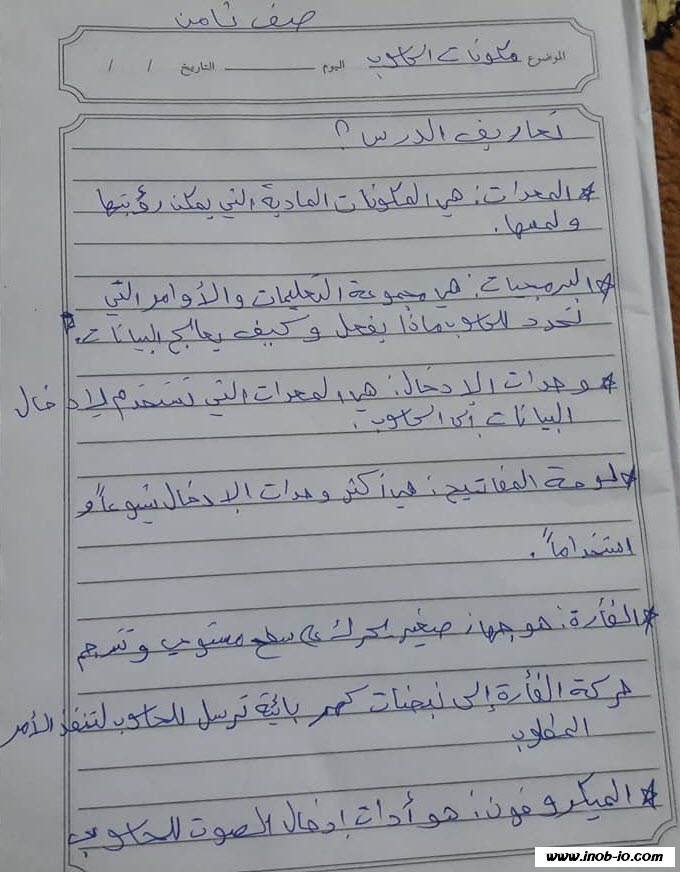 صف ثامن
الموضوع مكونات الحاسوب اليوم ــــــــ التاريخ / /
تعاريف الدرس ؟
* المعدات : هي المكونات المادية التي يمكن رؤيتها
ولمسها .
* البرمجيات : هي مجموعة التعليمات والأوامر التي
تحدد للحاسوب ماذا يفعل وكيف يعالج البيانات .
* وحدات الادخال : هي المعدات التي تستخدم لإدخال
البيانات إلى الحاسوب .
* لوحة المفاتيح : هي أكثر وحدات الإدخال شيوعاً و
استخداماً .
* الفأرة : هو جهاز صغير يحرك على سطح مستوي وتترجم
حركة الفأرة إلى نبضات كهربائية ترسل للحاسوب لتنفذ الأمر
المطلوب
* الميكروفون : هو أدات إدخال الصوت للحاسوب
www.inob-io.com